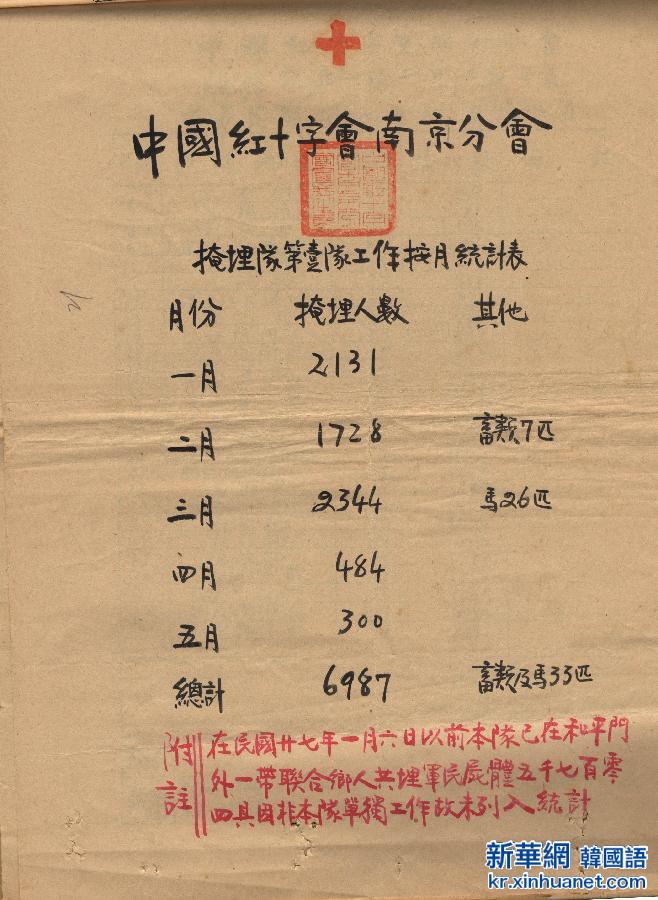 中國紅十字會南京分會
掩埋隊第壹隊工作按月統計表
月份 掩埋人數 其他
一月 2131
二月 1728 畜類7匹
三月 2344 馬26匹
四月 484
五月 300
總計 6987 畜類及馬33匹
附註 在民國廿七年一月六日以前本隊已在和平門
外一帶聯合鄉人共埋軍民屍體五千七百零
四具因非本隊單獨工作故未列入統計
新華網 韓國語
kr.xinhuanet.com